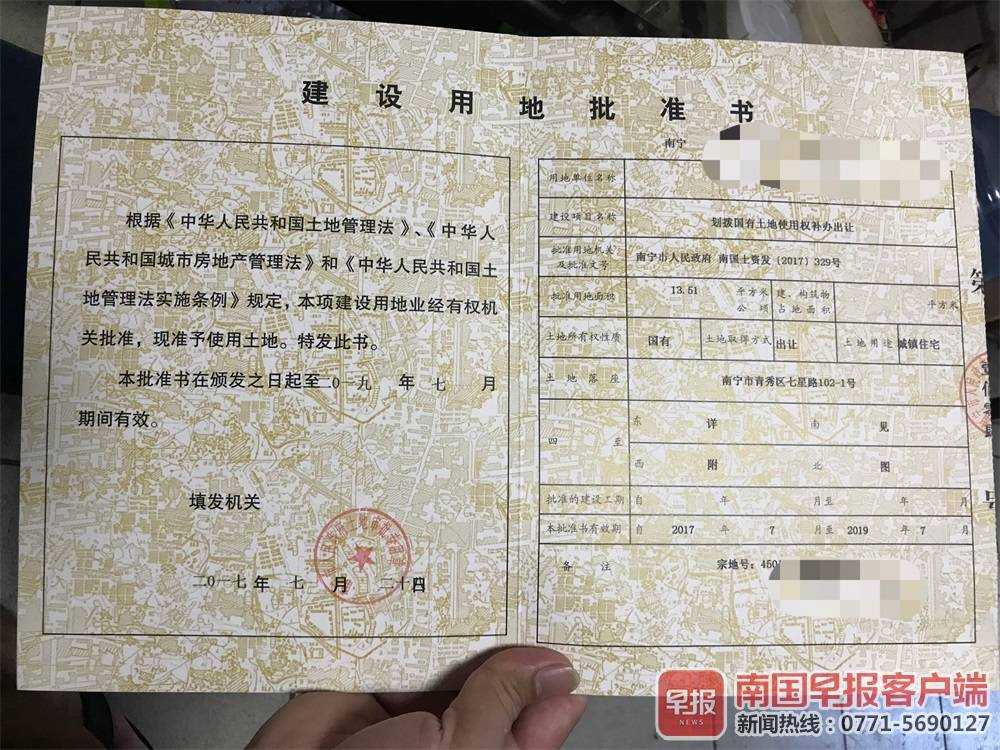 建设用地批准书
根据《中华人民共和国土地管理法》、《中华人
民共和国城市房地产管理法》和《中华人民共和国土
地管理法实施条例》规定，本项建设用地业经有权机
关批准，现准予使用土地。特发此书。
本批准书在颁发之日起至二〇一九 年 七 月
期间有效。
填发机关
二〇一七 年 七 月 二十 日
南宁
用地单位名称
建设项目名称 划拨国有土地使用权补办出让
批准用地机关及批准文号 南宁市人民政府 南国土资发〔2017〕329号
批准用地面积 13.51 平方米 公顷 建、构筑物占地面积 平方米
土地所有权性质 国有 土地取得方式 出让 土地用途 城镇住宅
土地座落 南宁市青秀区七星路102-1号
四至 东 详 南 见
西 附 北 图
批准的建设工期 自 年 月至 年 月
本批准书有效期 自 2017 年 7 月至 2019 年 7 月
备注 宗地号：450
早报
NEWS
南国早报客户端
新闻热线：0771-5690127